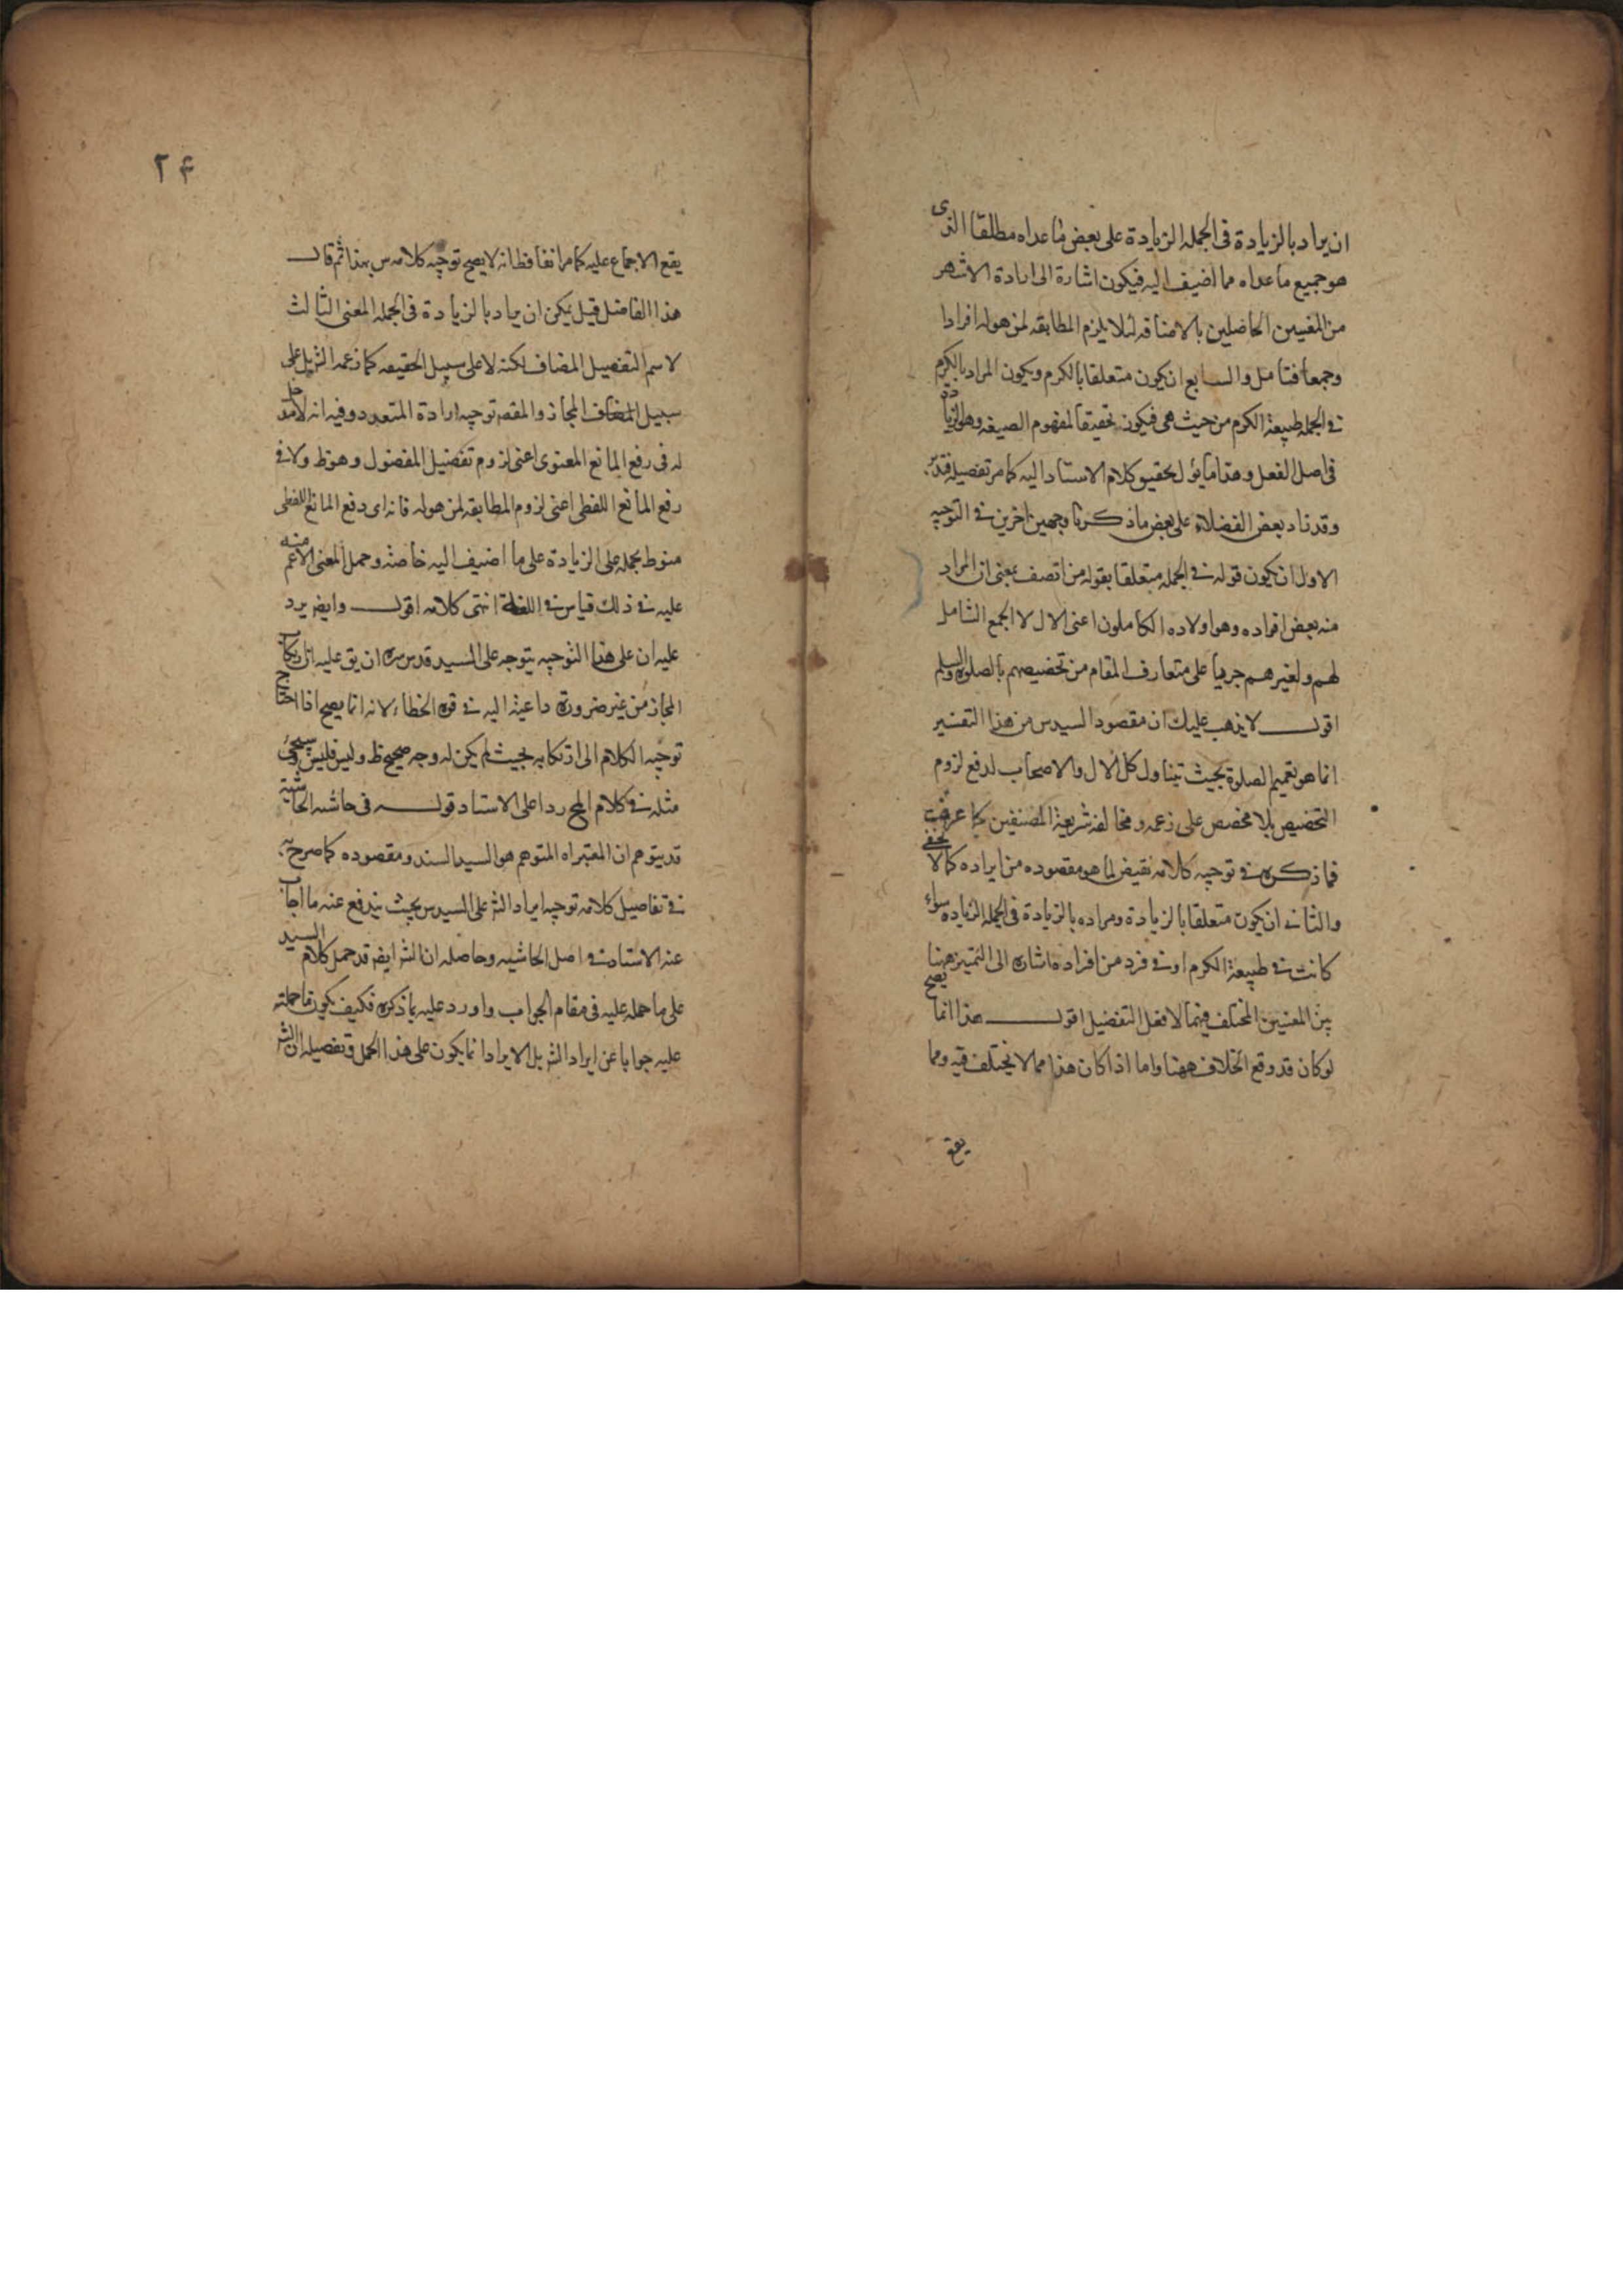 ان يراد بالزيادة فى الجمله الزيادة على بعض ما عداه مطلقا الذى
هو جميع ما عداه مما اضيف اليه فيكون اشارة الى ارادة الاشهر
من المعنيين الحاصلين بالاضافه لئلا يلزم المطابقه لمن هو له افرادا
وجمعا فتامل والسابع ان يكون متعلقا بالكرم ويكون المراد بالكرم
فى الجمله طبيعة الكرم من حيث هى فيكون تحقيقا لمفهوم الصيغه وهو الزيادة
فى اصل الفعل وهذا ما يؤل تحقيق كلام الاستاد اليه كما مر تفصيله فتدبر
وقد زاد بعض الفضلاء على بعض ما ذكرنا وجهين اخرين فى التوجيه
الاول ان يكون قوله فى الجمله متعلقا بقوله من اتصف بمعنى ان المراد
منه بعض افراده وهو اولاده الكاملون اعنى الال لا الجمع الشامل
لهم ولغيرهم جريا على متعارف المقام من تخصيصهم بالصلوة والسلم
اقول لا يذهب عليك ان مقصود السيد س من هذا التفسير
انما هو تعميم الصلوة بحيث يتناول كل الال والاصحاب لدفع لزوم
التخصيص بلا مخصص على زعمه ومخالفه شريعة المصنفين كما عرفت
فما ذكره فى توجيه كلامه نقيض لما هو مقصوده من ايراده كما لا يخفى
والثانى ان يكون متعلقا بالزيادة ومراده بالزيادة فى الجمله الزياده سواء
كانت فى طبيعة الكرم او فى فرد من افراده اشاره الى التميز ههنا
بين المعنيين المختلف فيهما لافعل التفضيل اقول هذا انما يصح
لو كان قد وقع الخلاف ههنا واما اذا كان هذا مما لا يختلف فيه ومما
يقع
۲۴
يقع الاجماع عليه كما مر انفا فظ انه لا يصح توجيه كلامه س بهذا ثم قال
هذا الفاضل قيل يمكن ان يراد بالزيادة فى الجمله المعنى الثالث
لاسم التفضيل المضاف لكنه لا على سبيل الحقيقه كما زعمه الش بل على
سبيل المجاز والمقص توجيه ارادة المتعدد وفيه انه لا مدخل
له فى رفع المانع المعنوى اعنى لزوم تفضيل المفضول وهو ظ ولا فى
رفع المانع اللفظى اعنى لزوم المطابقه لمن هو له فانه اى دفع المانع اللفظى
منوط بحمله على الزيادة على ما اضيف اليه خاصة وحمل المعنى الاعم منه
عليه فى ذلك قياس فى اللغة انتهى كلامه اقول وايض يرد
عليه ان على هذا التوجيه يتوجه على السيد قدس سره ان يق عليه ان ارتكاب
المجاز من غير ضرورة داعية اليه فى قوة الخطاء لانه انما يصح اذا احتاج
توجيه الكلام الى ارتكابه بحيث لم يكن له وجه صحيح ظ وليس فليس وسيجئ
مثله فى كلام المح ردا على الاستاد قوله فى حاشيه الحاشيه
قد يتوهم ان المعتبر اه المتوهم هو السيد السند ومقصوده كما صرح به
فى تفاصيل كلامه توجيه ايراد الش على السيد س بحيث يندفع عنه ما اجاب
عنه الاستاد فى اصل الحاشيه وحاصله ان الش ايض قد حمل كلام السيد
على ما حمله عليه فى مقام الجواب واورد عليه بما ذكره فكيف يكون ما حملته
عليه جوابا عن ايراد الش بل الايراد انما يكون على هذا الحمل وتفصيله ان الش